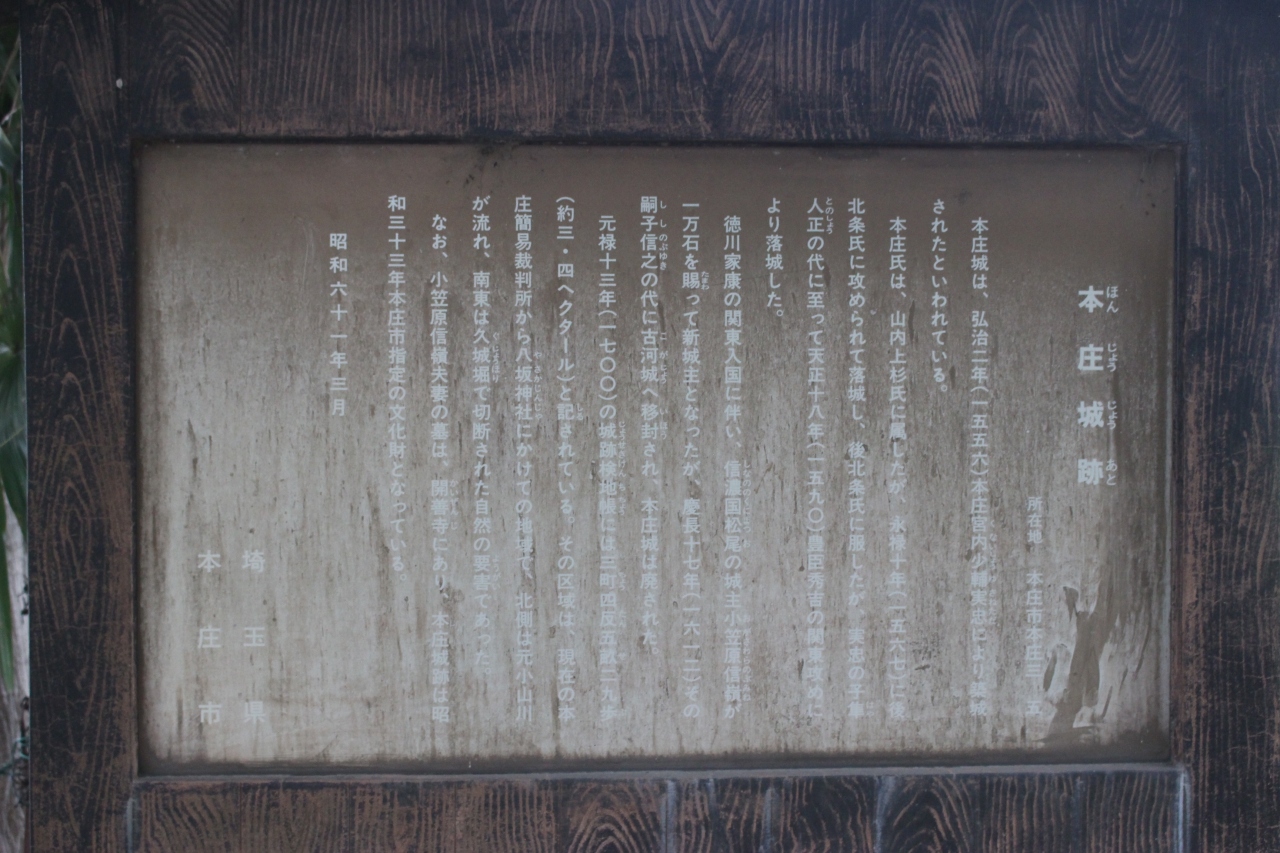 本庄城跡
所在地 本庄市本庄三 五
本庄城は、弘治二年(一五五六)本庄宮内少輔実忠により築城
されたといわれている。
本庄氏は、山内上杉氏に属したが、永禄十年(一五六七)に後
北条氏に攻められて落城し、後北条氏に服したが、実忠の子隼
人正の代に至って天正十八年(一五九〇)豊臣秀吉の関東攻めに
より落城した。
徳川家康の関東入国に伴い、信濃国松尾の城主小笠原信嶺が
一万石を賜って新城主となったが、慶長十七年(一六一二)その
嗣子信之の代に古河城へ移封され、本庄城は廃された。
元禄十三年(一七〇〇)の城跡検地帳には三町四反五畝二九歩
(約三・四ヘクタール)と記されている。その区域は、現在の本
庄簡易裁判所から八坂神社にかけての地域で、北側は元小山川
が流れ、南東は久城堀で切断された自然の要害であった。
なお、小笠原信嶺夫妻の墓は、開善寺にあり、本庄城跡は昭
和三十三年本庄市指定の文化財となっている。
昭和六十一年三月
埼玉県
本庄市